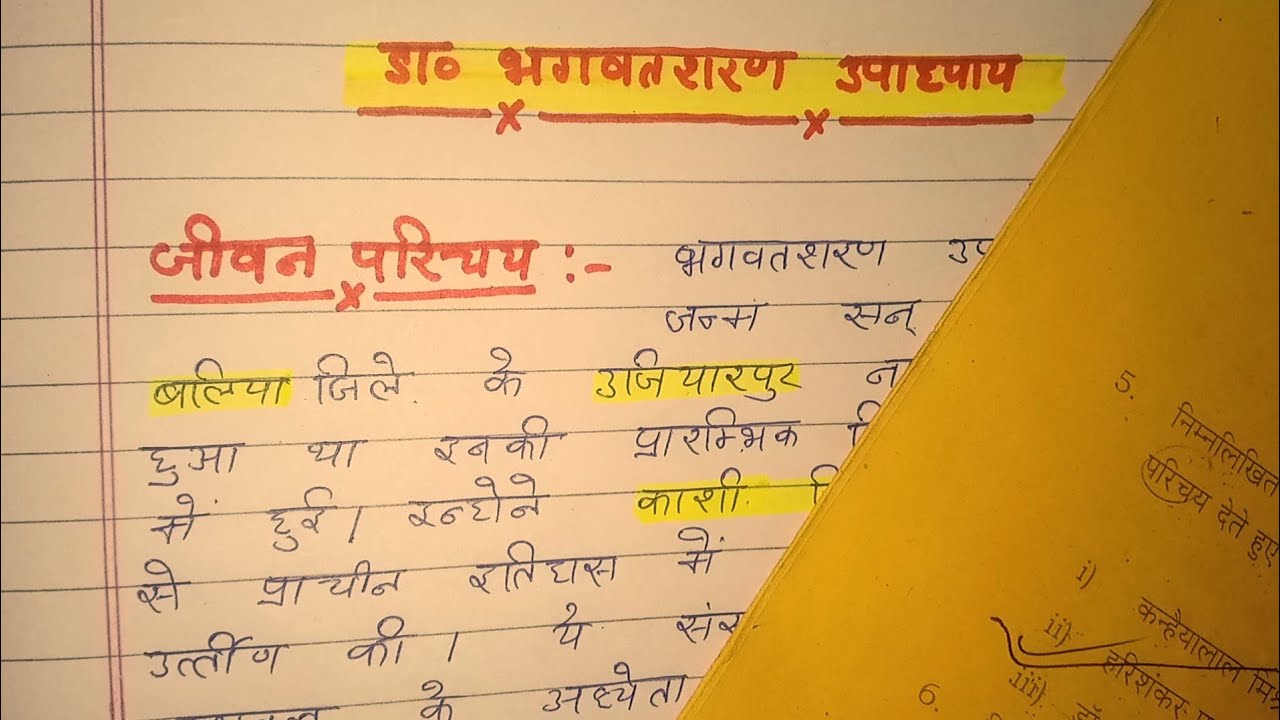 डा० भगवतशरण उपाध्याय
जीवन परिचय :- भगवतशरण
जन्म सन्
बलिया जिले के उजियारपुर
हुआ था इनकी प्रारम्भिक
में हुई। इन्होने काशी
से प्राचीन इतिहास में
उर्त्तीण की। ये
के अध्येता
5. निम्नलिखित
परिचय देते हुए
i) कन्हैयालाल
ii) हरिशंकर
iii)
6.